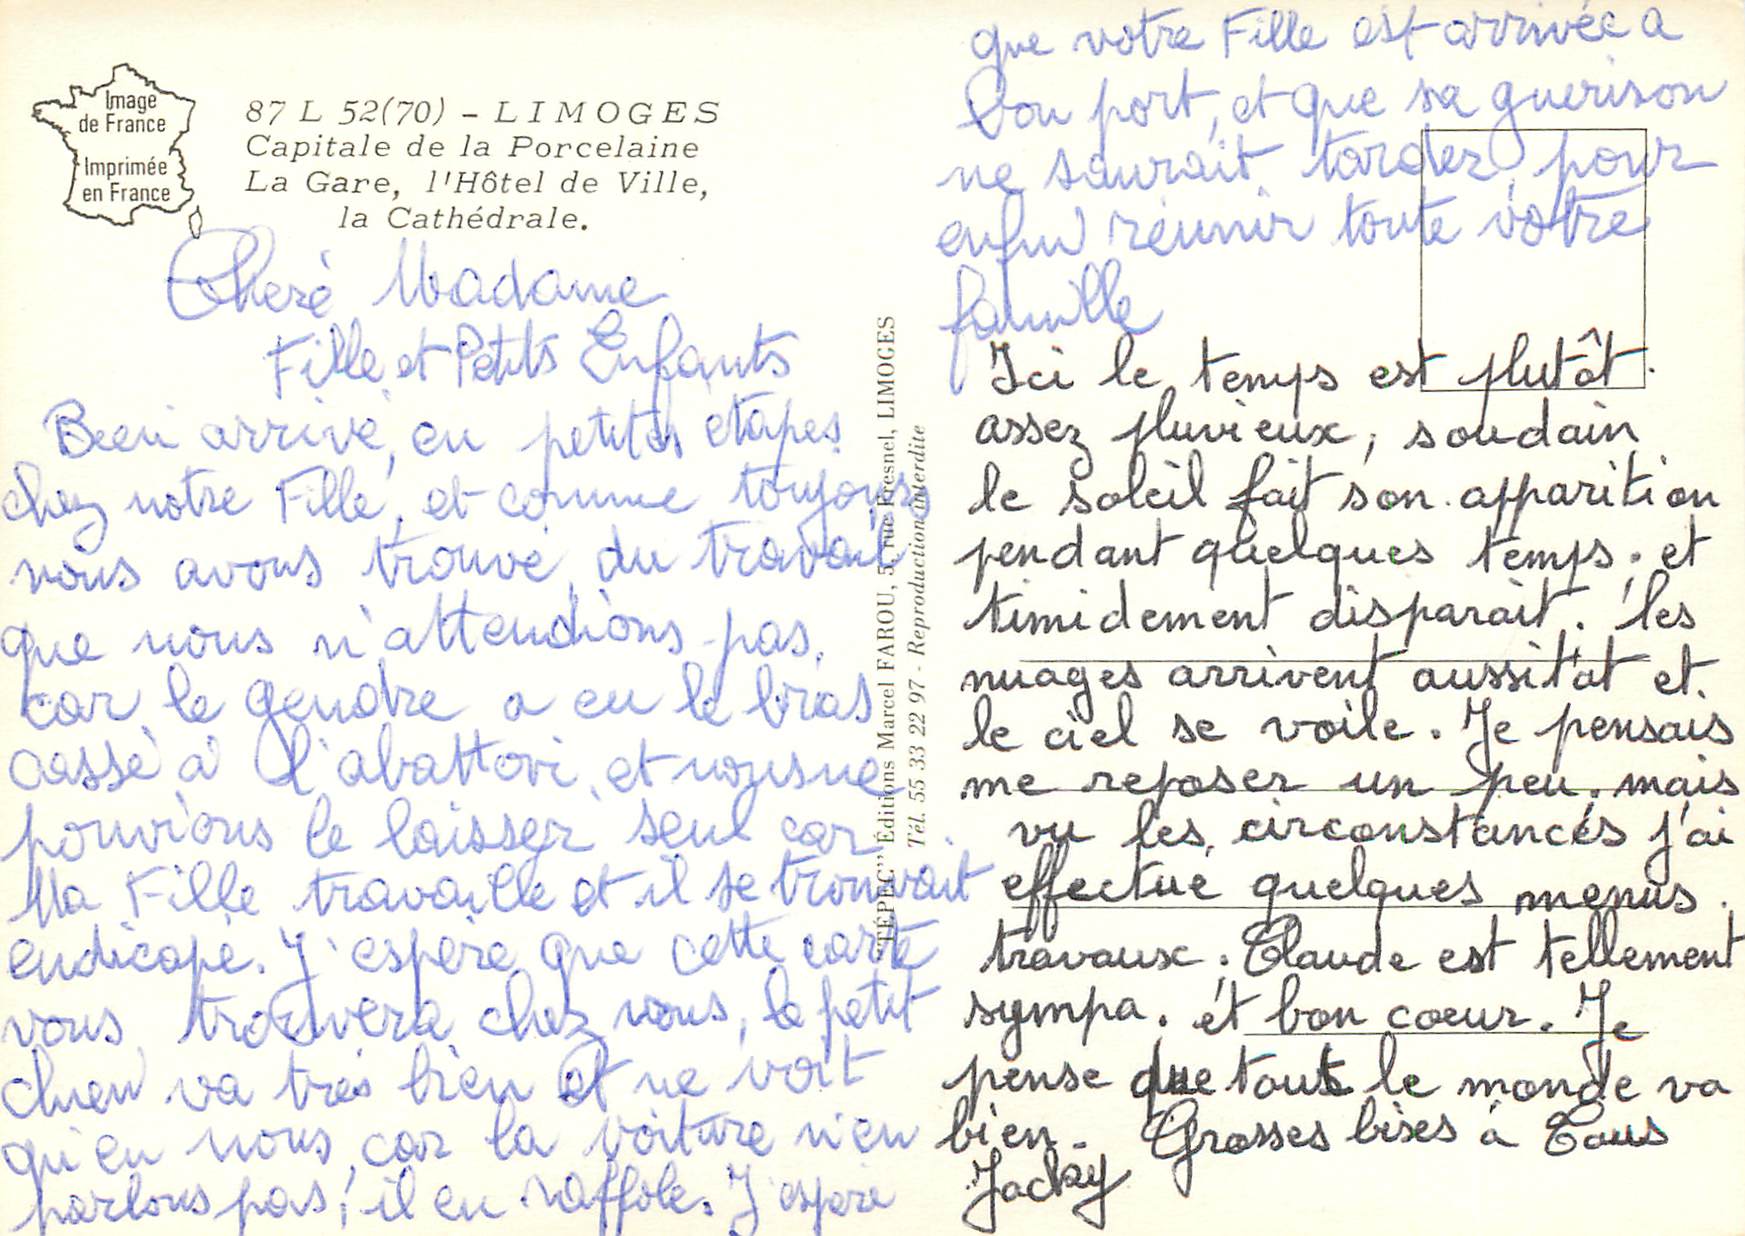 Image
de France
Imprimée
en France
87 L 52(70) - LIMOGES
Capitale de la Porcelaine
La Gare, l'Hôtel de Ville,
la Cathédrale.
Cheré Madame
Fille et Petits Enfants
Bien arrivé, en petites étapes
chez notre Fille, et comme toujours
nous avons trouvé, du travail
que nous n'attendions pas,
car le gendre a eu le bras
cassé à l'abattoir, et nous ne
pouvions le laisser seul car
Ma Fille travaille et il se trouvait
endicapé. J'espère que cette carte
vous trouvera chez vous, le petit
chien va très bien et ne voit
qu'en nous, car la voiture n'en
parlons pas! il en raffole. J'espère
que votre Fille est arrivée a
bon port, et que sa guerison
ne saurait tarder, pour
enfin réunir toute votre
famille
Ici le temps est plutôt.
assez pluvieux, soudain
le soleil fait son apparition
pendant quelques temps. et
timidement disparait. les
nuages arrivent aussitôt et.
le ciel se voile. Je pensais
me reposer un peu, mais
vu les circonstances j'ai
effectué quelques menus
travaux. Claude est tellement
sympa. et bon coeur. Je
pense que tout le monde va
bien. Grosses bises à Tous
Jacky
"TEPEC" Éditions Marcel FAROU, 5, rue Fresnel, LIMOGES
Tél. 55 33 22 97 - Reproduction interdite